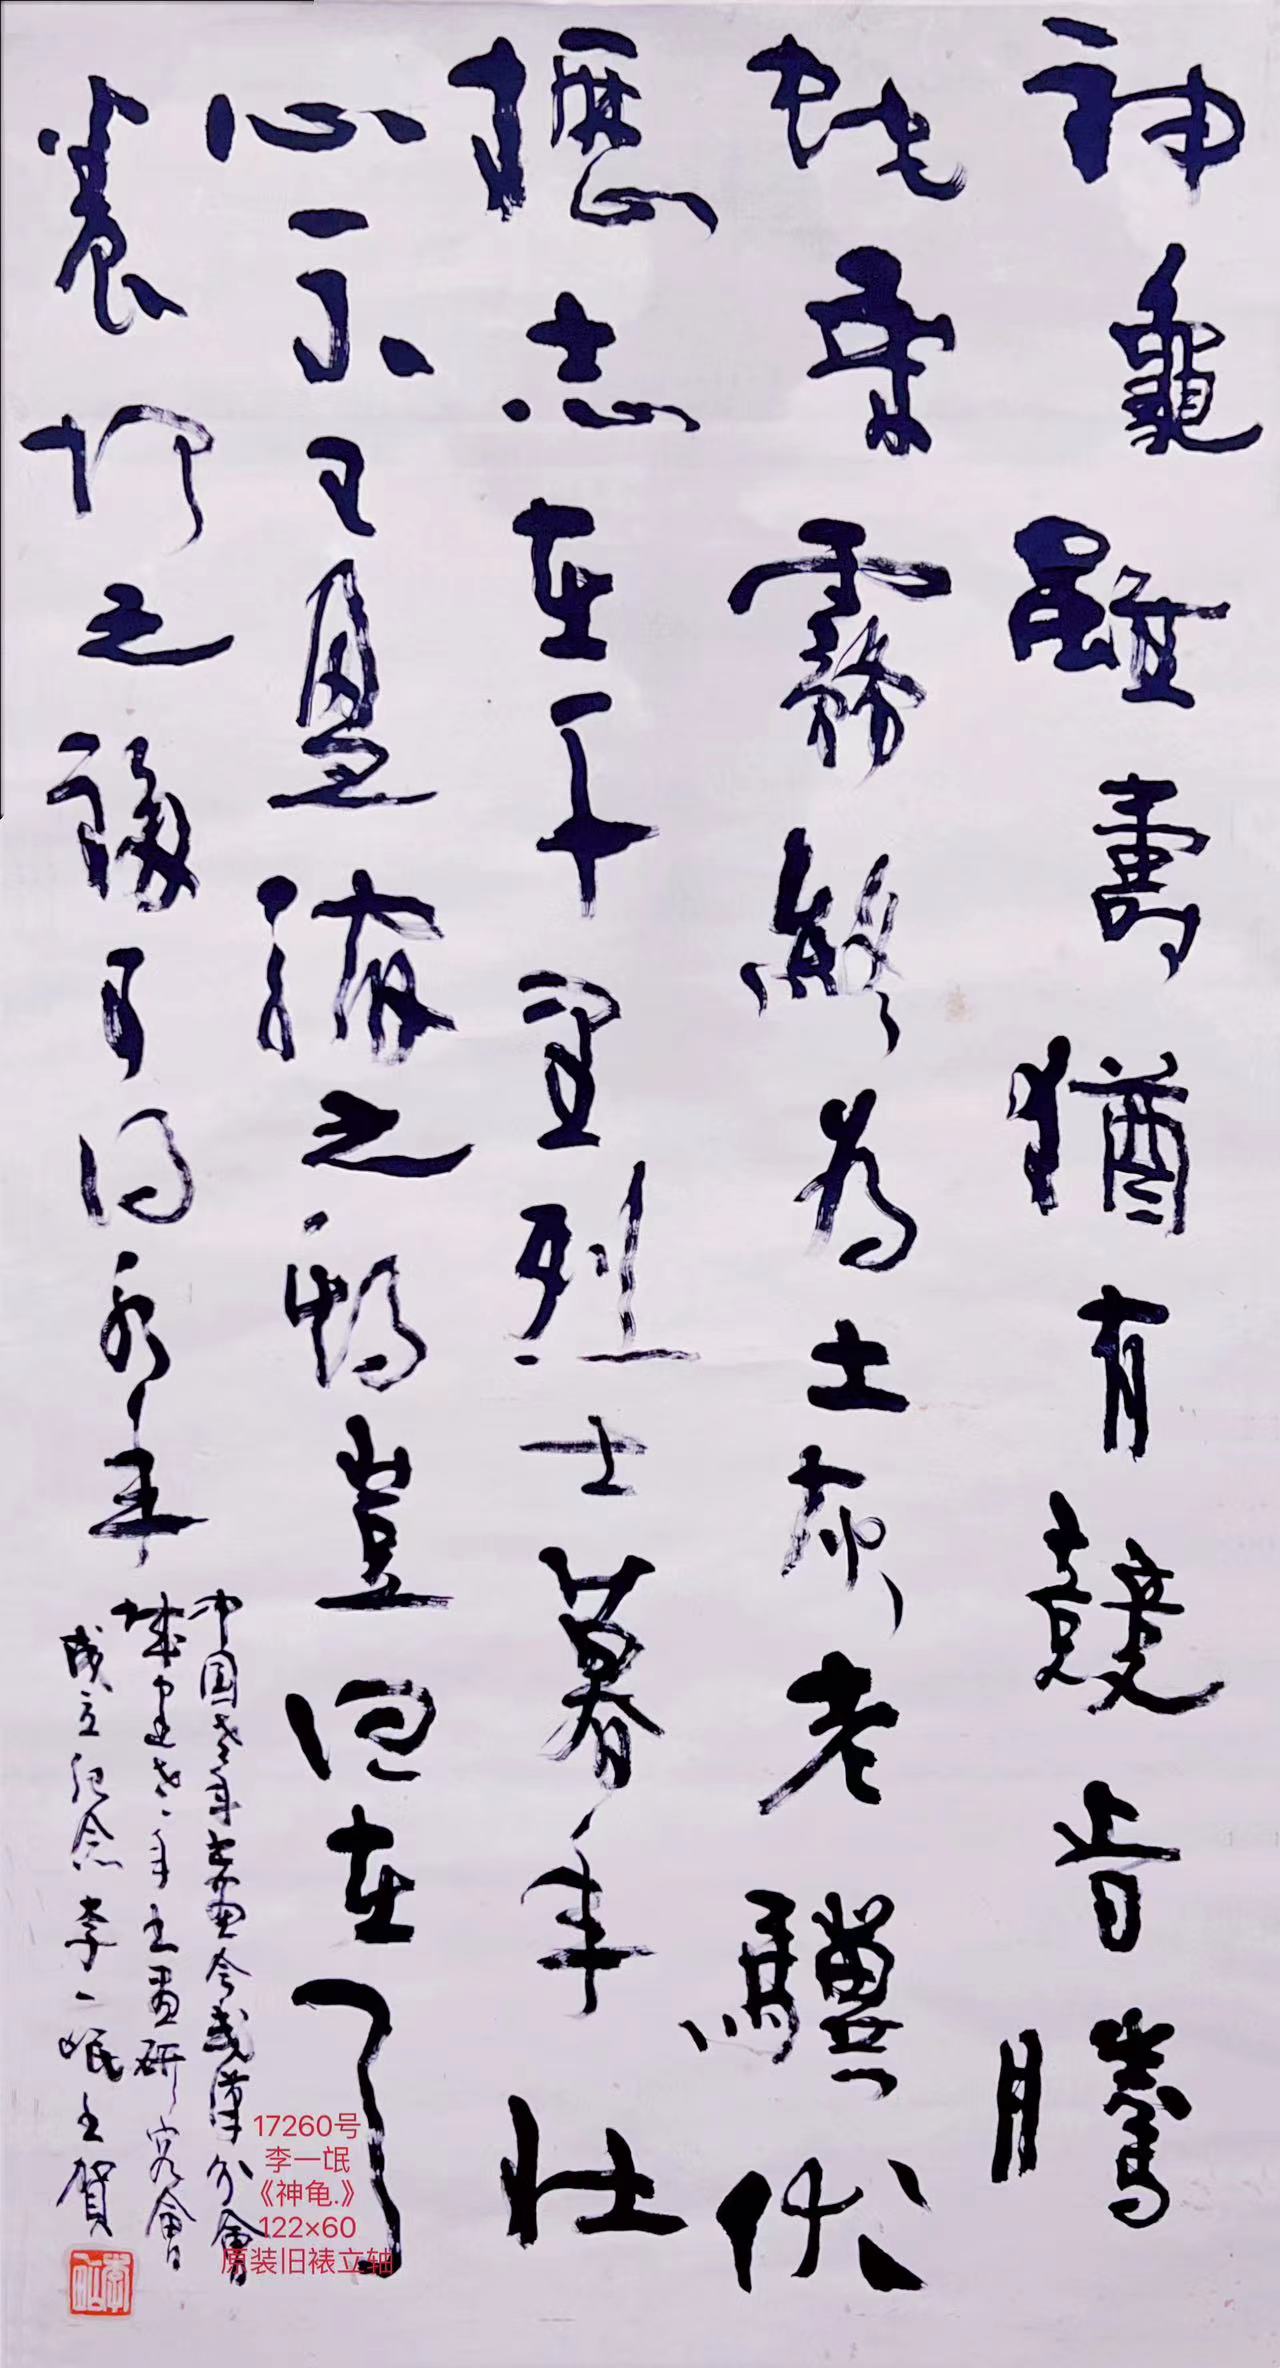 神龜雖壽猶有競旹騰
蛇乘霧終為土灰老驥伏
櫪志在千里烈士暮年壯
心不已盈縮之期豈但在
養怡之福可得永年
中国老年书画会武漢分會
城建老年书画研究會
成立纪念李一氓书贺
17260号
李一氓
《神龟.》
122×60
原装旧裱立轴